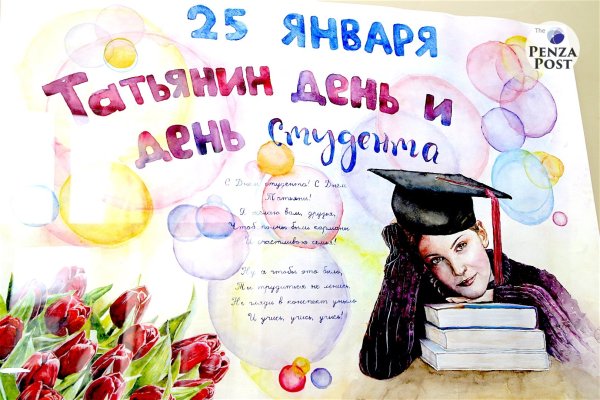 25 ЯНВАРЯ
The
PENZA
POST
Татьянин день и
день студента
С Днем студента! С Днем
Татьяны!
Я желаю вам, друзья,
Чтоб полны были карманы
И счастливою семья!
Ну, а чтобы это было,
Ты трудиться не ленись.
Не гляди в конспект уныло
И учись, учись, учись!